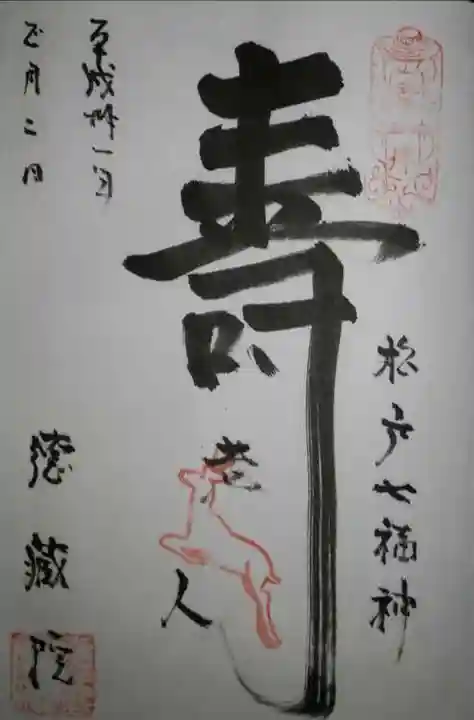 松戸七福神
寿老人
平成卅一年
正月二日
徳蔵院